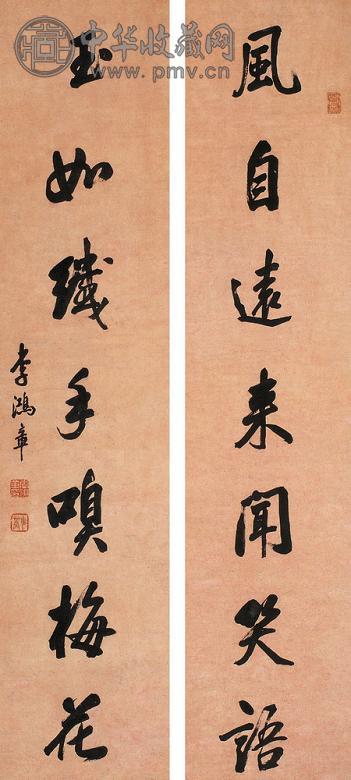 風自遠来聞笑語
玉如纖手嗅梅花
李鴻章
中华收藏网
www.pmv.cn